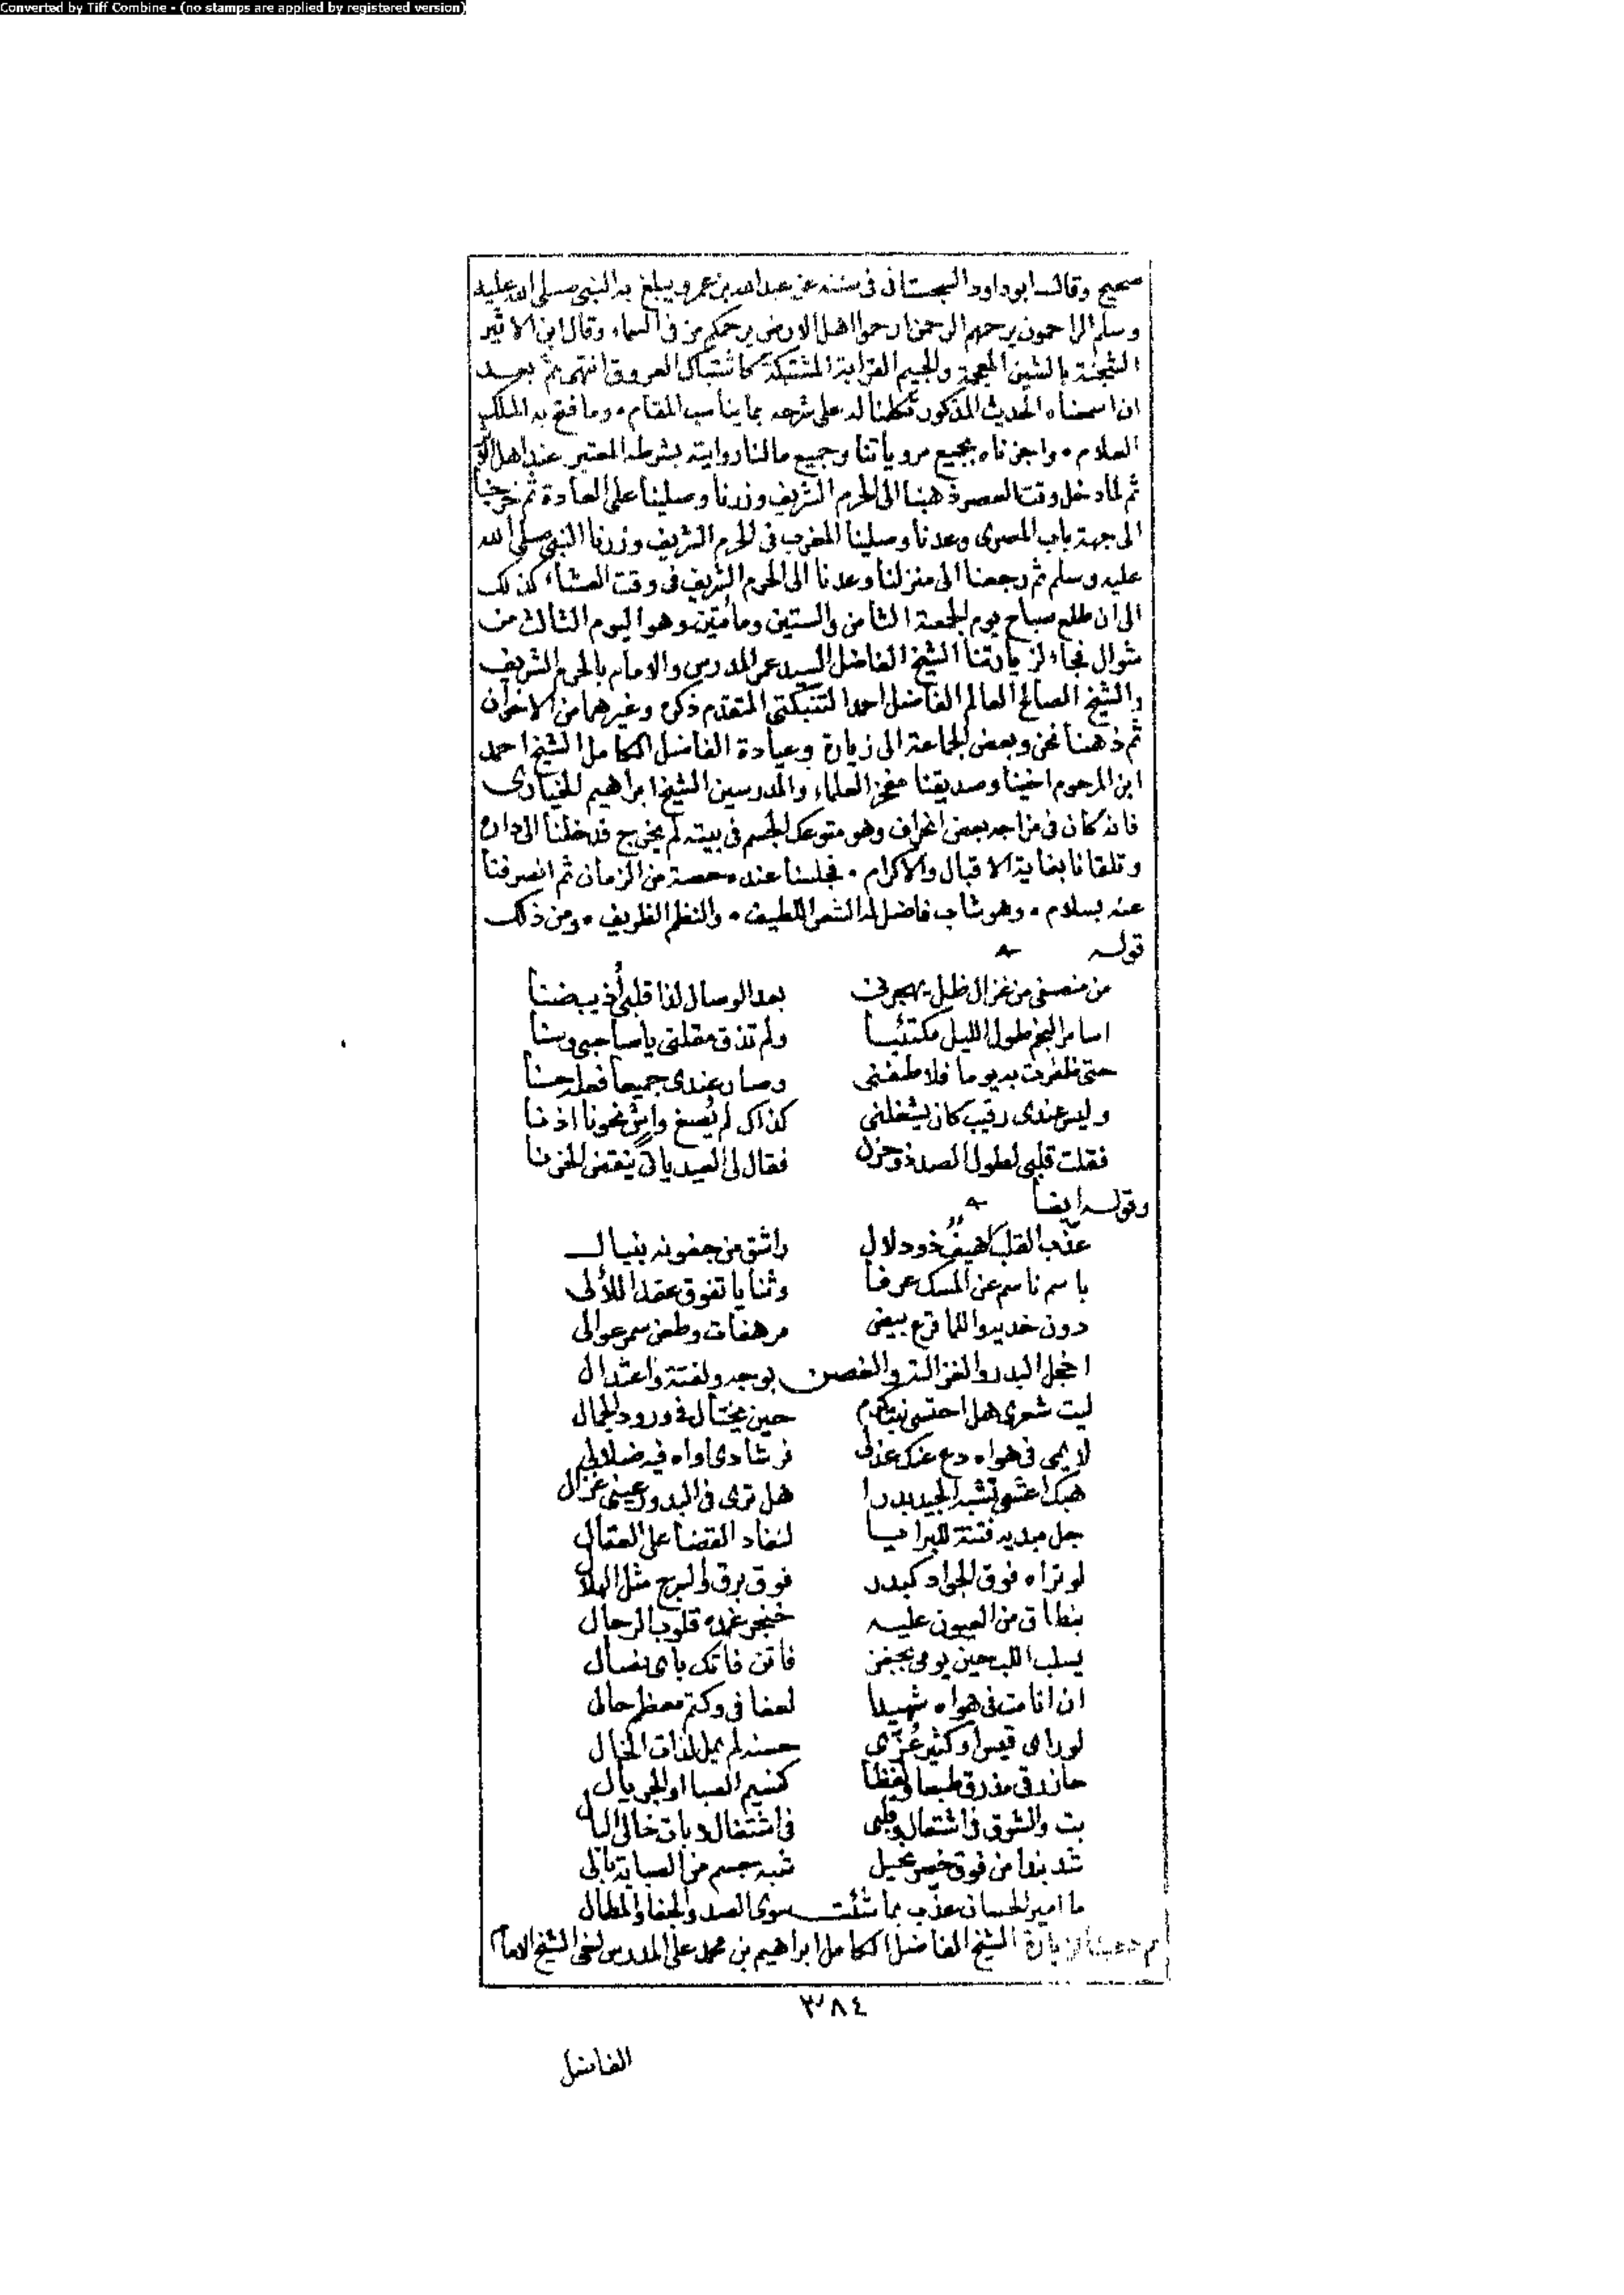 Converted by Tiff Combine - (no stamps are applied by registered version)
صحيح وقال ابو داود السجستانى فى سننه عن عبد الله بن عمرو يبلغ به النبى صلى الله عليه
وسلم الراحمون يرحمهم الرحمن ارحموا اهل الارض يرحمكم من فى السماء وقال ابن الاثير
الشجنة بالشين المعجمة والجيم القرابة المشتبكة كاشتباك العروق انتهى ثم بعد
ان اسمعناه الحديث المذكور تكلمنا له على شرحه بما يناسب المقام ٠ وما فتح به الملك
العلام ٠ واجزناه بجميع مروياتنا وجميع ما لنا روايته بشرطه المعتبر عند اهل
ثم لما دخل وقت العصر ذهبنا الى الحرم الشريف وزرنا وصلينا على العادة ثم خرجنا
الى جهة باب المصرى وعدنا وصلينا المغرب فى الحرم الشريف وزرنا النبى صلى الله
عليه وسلم ثم رجعنا الى منزلنا وعدنا الى الحرم الشريف فى وقت العشاء كذلك
الى ان طلع صباح يوم الجمعة الثامن والستين ومأتين وهو اليوم الثالث من
شوال فجاء لزيارتنا الشيخ الفاضل السيد عمر المدرس والامام بالحرم الشريف
والشيخ الصالح العالم الفاضل احمد التنبكتى المتقدم ذكره وغيرهما من الاخوان
ثم ذهبنا نحن وبعض الجماعة الى زيارة وعيادة الفاضل الكامل الشيخ احمد
ابن المرحوم اخينا وصديقنا مفخر العلماء والمدرسين الشيخ ابراهيم الخيارى
فانه كان فى مزاجه بعض انحراف وهو متوعك الجسم فى بيته لم يخرج فدخلنا الى داره
وتلقانا بغاية الاقبال والاكرام ٠ فجلسنا عنده حصة من الزمان ثم انصرفنا
عنه بسلام ٠ وهو شاب فاضل له الشعر اللطيف ٠ والنظم الظريف ٠ ومن ذلك
قوله
من منصفى من غزال ظل يهجرنى بعد الوصال لذا قلبى أذيب ضنا
اسامر النجم طول الليل مكتئبا ولم تذق مقلتى يا صاحبى وسنا
حتى ظفرت به يوما فلاطفنى وصار عندى جميعا فعله حسنا
وليس عندى رقيب كان يشغلنى كذاك لم يُصغ واشٍ نحونا اذنا
فقلت قلبى لطول الصد ذو حزن فقال لى العيد يأتى ينقضى الحزنا
وقوله ايضا
عذب القلب اهيف ذو دلال راشق من جفونه بنبال
باسم ناسم عن المسك عرفا وثنايا تفوق عقد اللآلى
دون خديه واللما قرع بيض مرهفات وطعن سمر عوالى
اخجل البدر والغزالة والغصن بوجه ولفتة واعتدال
ليت شعرى هل احتسى حين يختال فى ورود الجمال
لايمى فى هواه دع عنك عذلى فرشادى اراه فيه ضلالى
هبك اعشى تشبه الجيد بدرا هل ترى فى البدور عينى غزال
جل مبديه فتنة للبرايا لنفاد القضا على العقال
لو تراه فوق الجواد كبدر فوق برق والسرج مثل الهلال
بنطاق من العيون عليه خنجر غمده قلوب الرجال
يسلب اللب حين يومى بجفن فاتن فاتك باى نصال
ان انا مت فى هواه شهيدا
لو راى قيس او كثير عزى حسنه لم يمل لذات الخال
حاز رقى مذ رق طبعا ولفظا كنسيم الصبا او الجريال
بت والشوق فى اشتعال وقلبى فى اشتغال وبات خالى البال
شد بندا من فوق خصر نحيل شبه جسم من الصبابة بالى
ما امير الحسان عذب بما شئت سوى الصد والجفا والمطال
لزيارة الشيخ الفاضل الكامل ابراهيم بن محمد على المدرس الشيخ الامام
٣٨٤
الفاضل